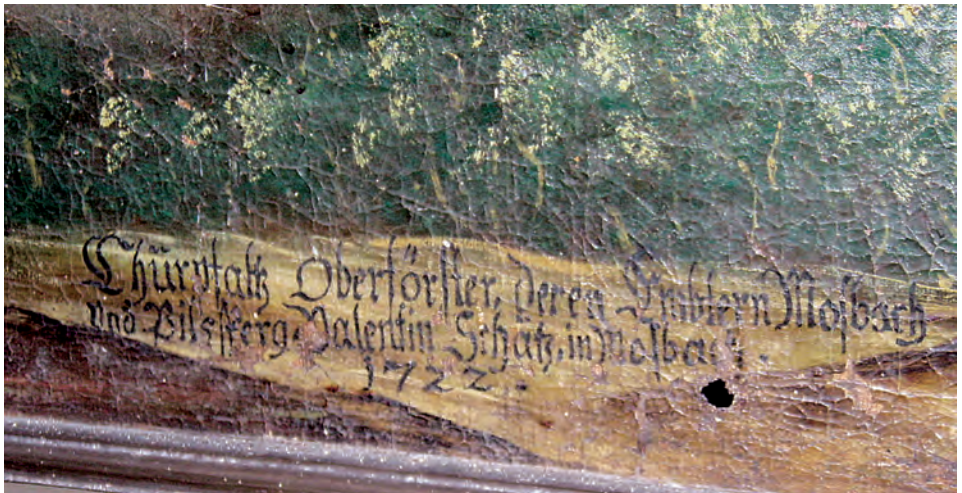 Chürpfaltz Oberförster, deren Embtern Mosbach
vnd Dilsperg. Valentin Schätz, in Mosbach.
1722.